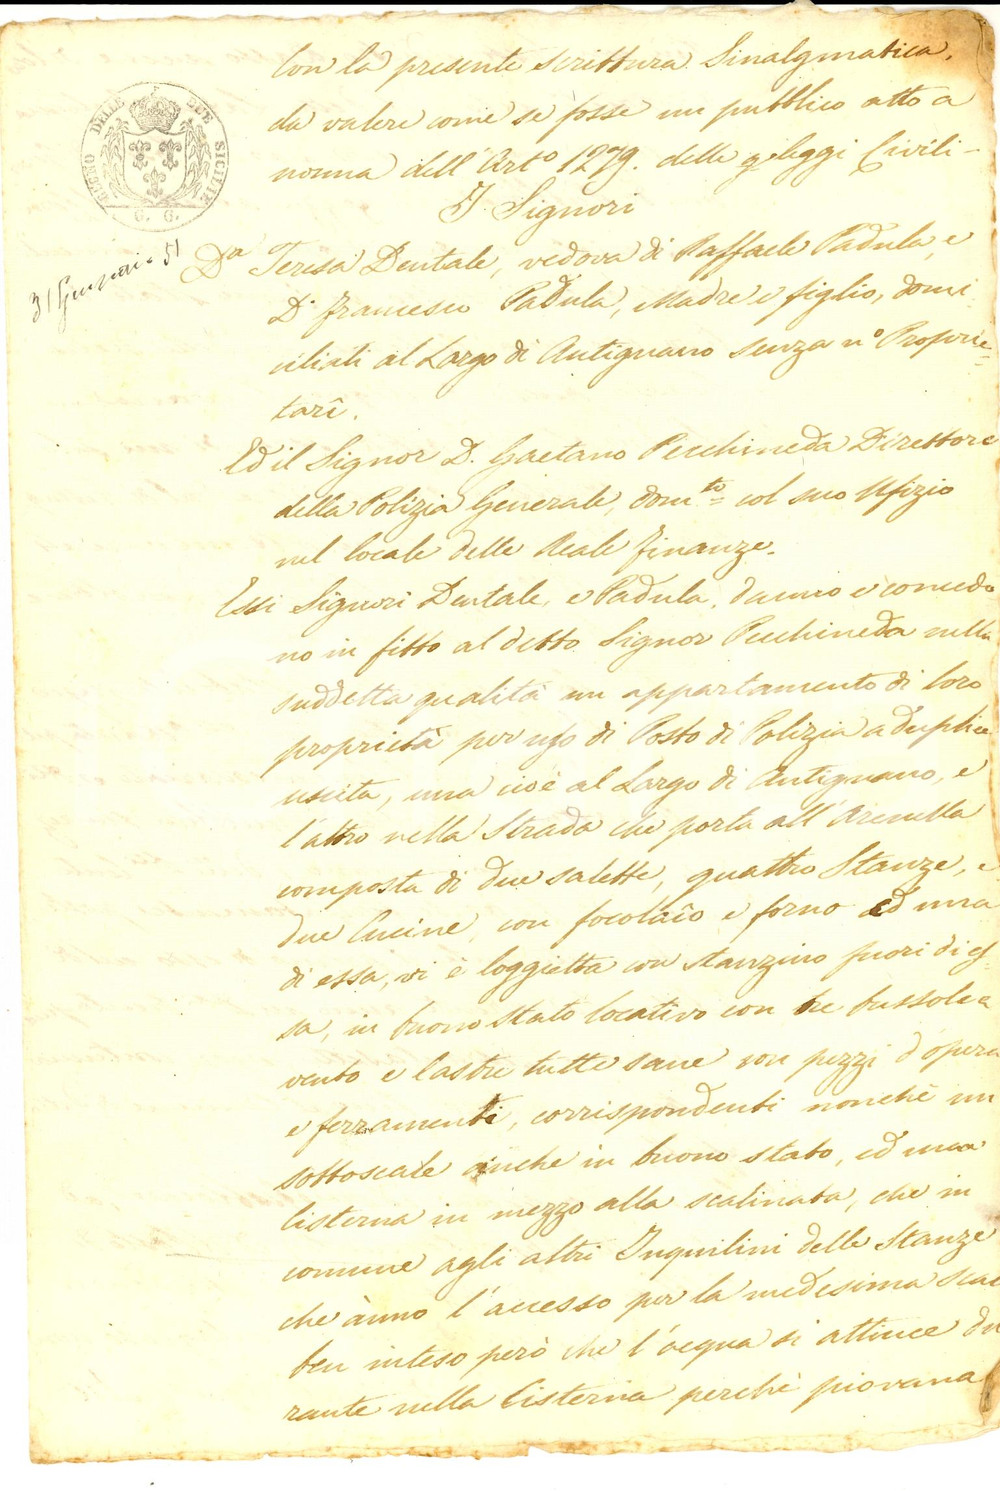 REGNO DELLE DUE SICILIE
G. G.
31 Gennaio 51
Con la presente scrittura Sinalgmatica,
da valere come se fosse un pubblico atto a
norma dell'Arto 1279. delle leggi Civili-
I Signori
Da Teresa Dentale, vedova di Raffaele Padula, e
D. Francesco Padula, Madre e figlio, domi
ciliati al Largo di Antignano senza no Proprie=
tarî.
Ed il Signor D. Gaetano Pecchineda Direttore
della Polizia Generale, domto= col suo Ufizio
nel locale delle Reale finanze.
Essi Signori Dentale, e Padula, danno e concedo
no in fitto al detto Signor Pecchineda nella
suddetta qualità un appartamento di loro
proprietà per uso di Posto di Polizia a duplice
uscita, una cioè al Largo di Antignano, e
l'altro nella Strada che porta all'Arenella
composta di due salette, quattro Stanze, e
due Cucine, con focolaio e forno ed una
di essa, vi è loggietta con stanzino fuori di es=
sa, in buono stato locativo con tre bussole a
vento e lastre tutte sane con pezzi d'opera
e ferramenti, corrispondenti nonchè un
sottoscale anche in buono stato, ed una
Cisterna in mezzo alla scalinata, che in
comune agli altri Inquilini delle Stanze
che ànno l'accesso per la medesima scal
ben inteso però che l'acqua si attince du
rante nella Cisterna perchè piovana